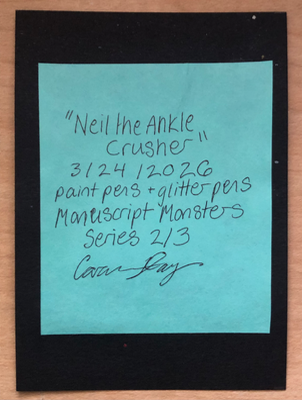 "Neil the Ankle
Crusher"
3/24/2026
paint pens + glitter pens
Manuscript Monsters
Series 2/3